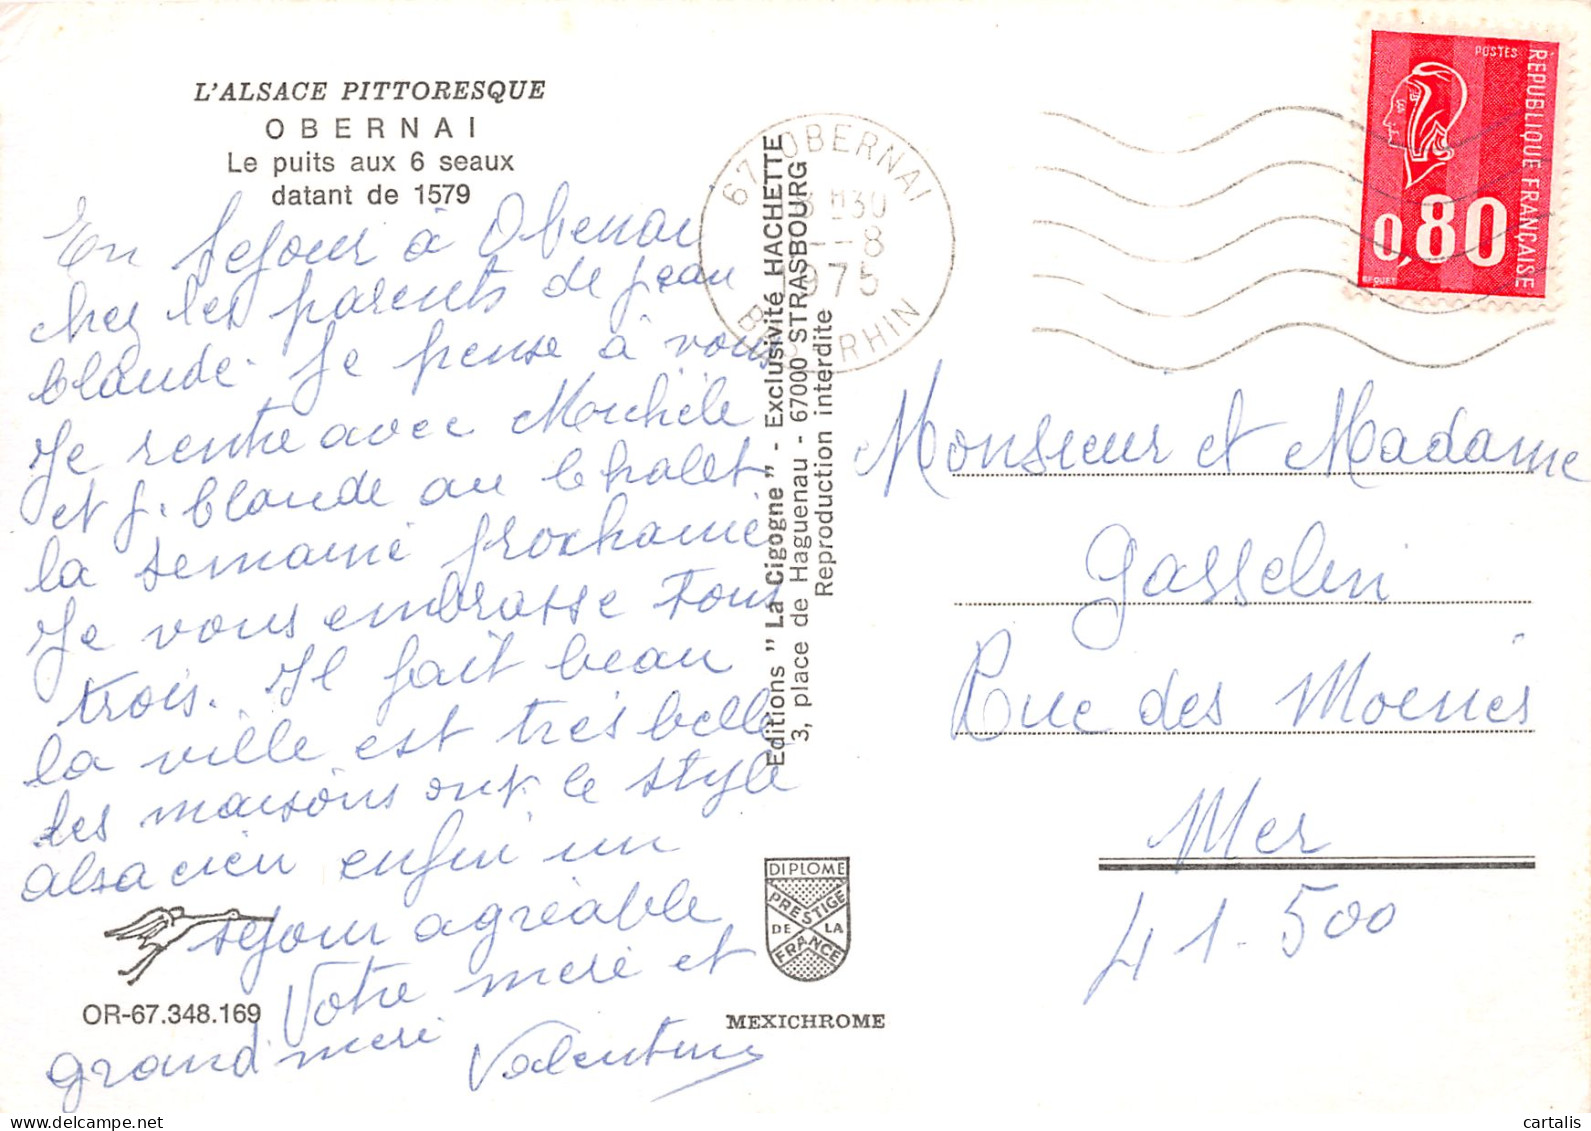 L'ALSACE PITTORESQUE
OBERNAI
Le puits aux 6 seaux
datant de 1579
En sejour à Obernai
chez les parents de jean
claude. Je pense à vous
Je rentre avec Michèle
et J. claude au chalet
la semaine prochaine
Je vous embrasse tous
trois. Il fait beau
la ville est très belle
les maisons ont le style
alsacien enfin un
sejour agréable
Votre mere et
grand mere Valentine
OR-67.348.169
Editions "La Cigogne" - Exclusivité HACHETTE
3, place de Haguenau - 67000 STRASBOURG
Reproduction interdite
DIPLOME
PRESTIGE
DE LA
FRANCE
MEXICHROME
67 OBERNAI
H30
-8
1975
BAS RHIN
POSTES
REPUBLIQUE FRANÇAISE
0,80
BEQUET
Monsieur et Madame
Gasselin
Rue des
Mer
41-500
cartalis
delcampe.net